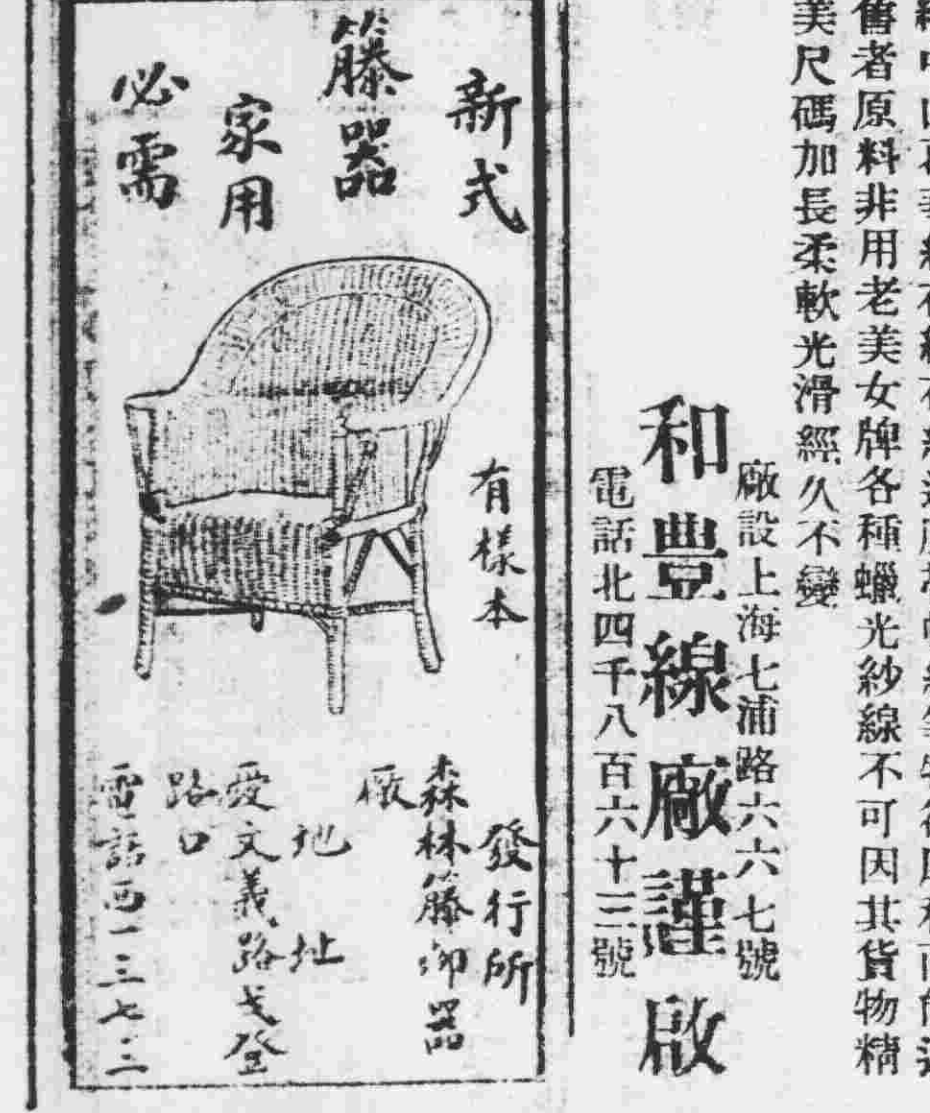 舊者原料非用老美女牌各種蠟光紗線不可因其貨物精
美尺碼加長柔軟光滑經久不變
廠設上海七浦路六六七號
和豊線廠謹啟
電話北四千八百六十三號
新式
籐器
家用
必需
有樣本
發行所
森林籐柳器
廠
地址
愛文義路戈登
路口
電話西一三七二